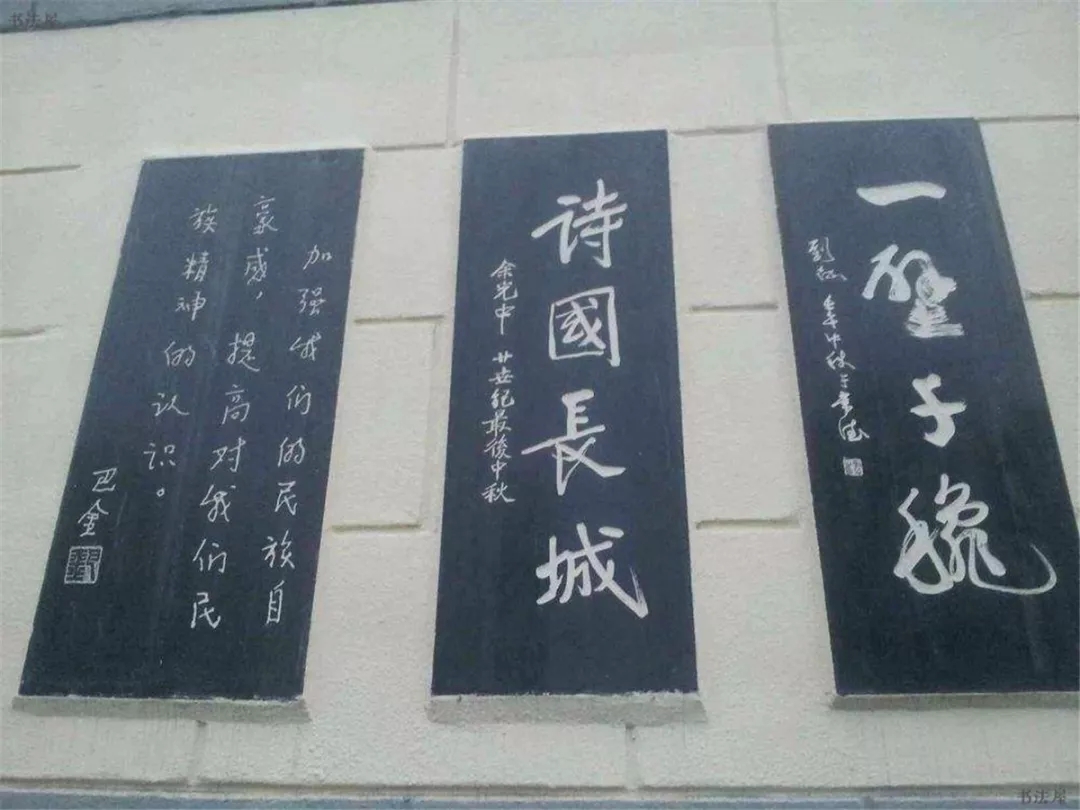 一壁千穐
中秋于常德
诗國長城
余光中 廿世纪最後中秋
加强我们的民族自
豪感，提高对我们民
族精神的认识。
巴金
书法屋
书法屋